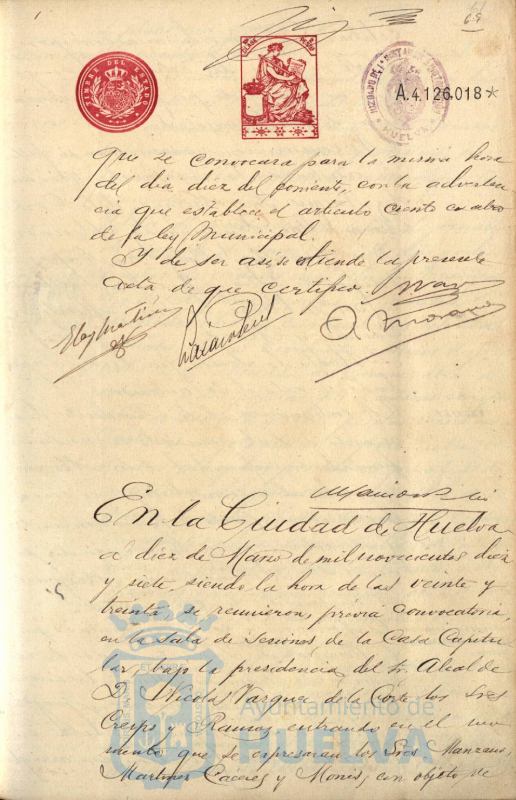 69
TIMBRE DEL ESTADO
HUELVA
A.4.126.018*
que se convocara para la misma hora
del dia diez del corriente, con la adverten
cia que establece el articulo ciento cuatro
de la ley Municipal.
Y de ser asi se extiende la presente
Acta de que certifico
En la Ciudad de Huelva
á diez de Marzo de mil novecientos diez
y siete, siendo la hora de las veinte y
treinta, se reunieron, previa convocatoria,
en la Sala de Sesiones de la Casa Capitu
lar, bajo la presidencia del Sr. Alcalde
D. Nicolas Vazquez de la Corte, los Sres
Crespo y Ramos, entrando en el mo
mento que se expresaran los Sres Manzano,
Martinez Caceres y Mones, con objeto de
Ayuntamiento de
HUELVA